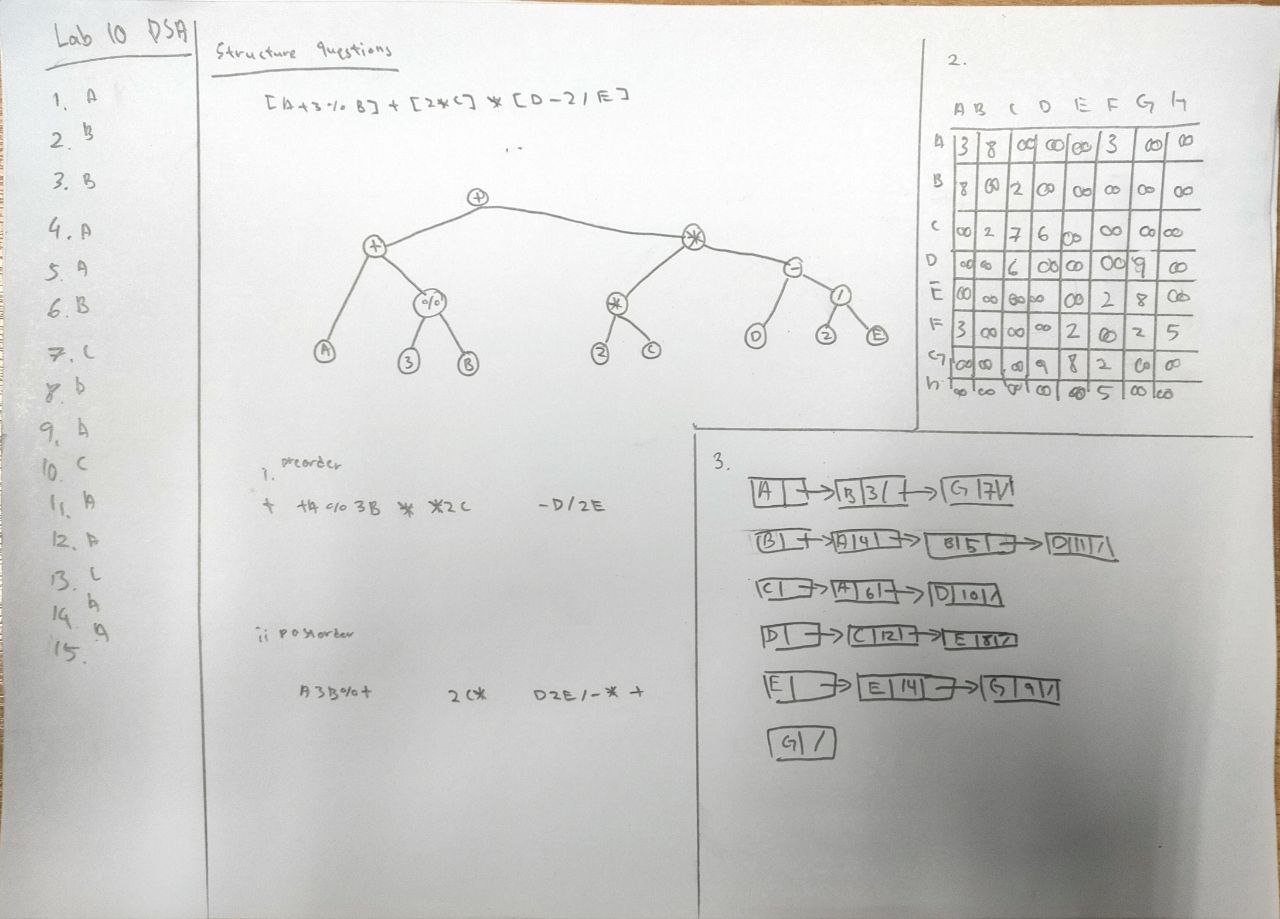 Lab 10 DSA
1. A
2. B
3. B
4. A
5. A
6. B
7. C
8. b
9. A
10. C
11. A
12. A
13. C
14. A
15. A
Structure Questions
[A+3%B] + [2*C] * [D-2/E]
+
+ *
% * -
/
A 3 B 2 C D 2 E
i. preorder
+ +A%3B * *2C -D/2E
ii postorder
A3B%+ 2C* D2E/-*+
2.
A B C D E F G H
A 3 8 ∞ ∞ ∞ 3 ∞ ∞
B 8 ∞ 2 ∞ ∞ ∞ ∞ ∞
C ∞ 2 7 6 ∞ ∞ ∞ ∞
D ∞ ∞ 6 ∞ ∞ ∞ 9 ∞
E ∞ ∞ ∞ ∞ ∞ 2 8 ∞
F 3 ∞ ∞ ∞ 2 ∞ 2 5
G ∞ ∞ ∞ 9 8 2 ∞ ∞
h ∞ ∞ ∞ ∞ ∞ 5 ∞ ∞
3.
A → B 3 → G 7 /
B → A 4 → B 5 → D 11 /
C → A 6 → D 10 /
D → C 12 → E 8 /
E → E 14 → G 9 /
G /